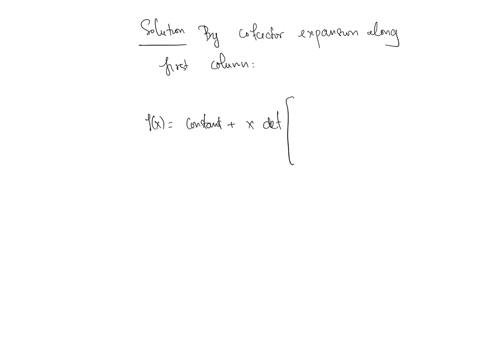 Solution By cofactor expansion along
first column:
f(x) = constant + x det [